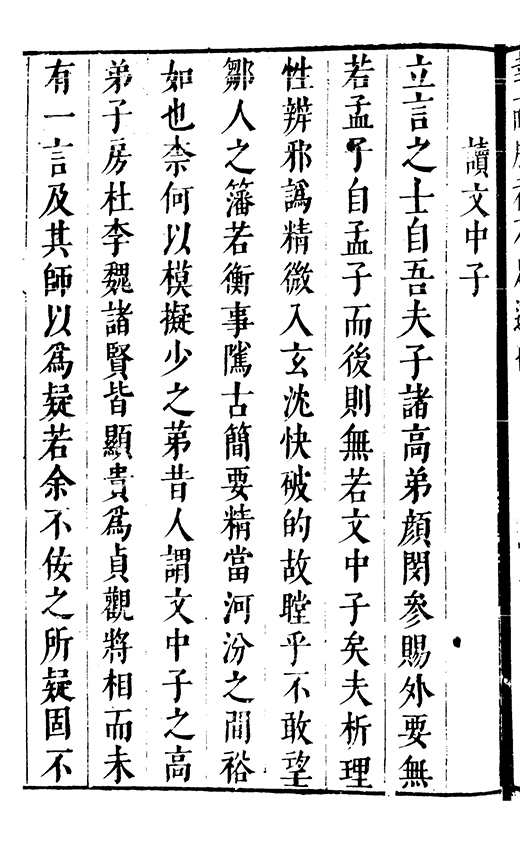 讀文中子
立言之士自吾夫子諸高弟顏閔參賜外要無
若孟子自孟子而後則無若文中子矣夫析理
性辨邪譌精微入玄沈快破的故瞠乎不敢望
鄒人之籓若衡事隲古簡要精當河汾之間裕
如也柰何以模擬少之苐昔人謂文中子之高
弟子房杜李魏諸賢皆顯貴爲貞觀將相而未
有一言及其師以爲疑若余不佞之所疑固不